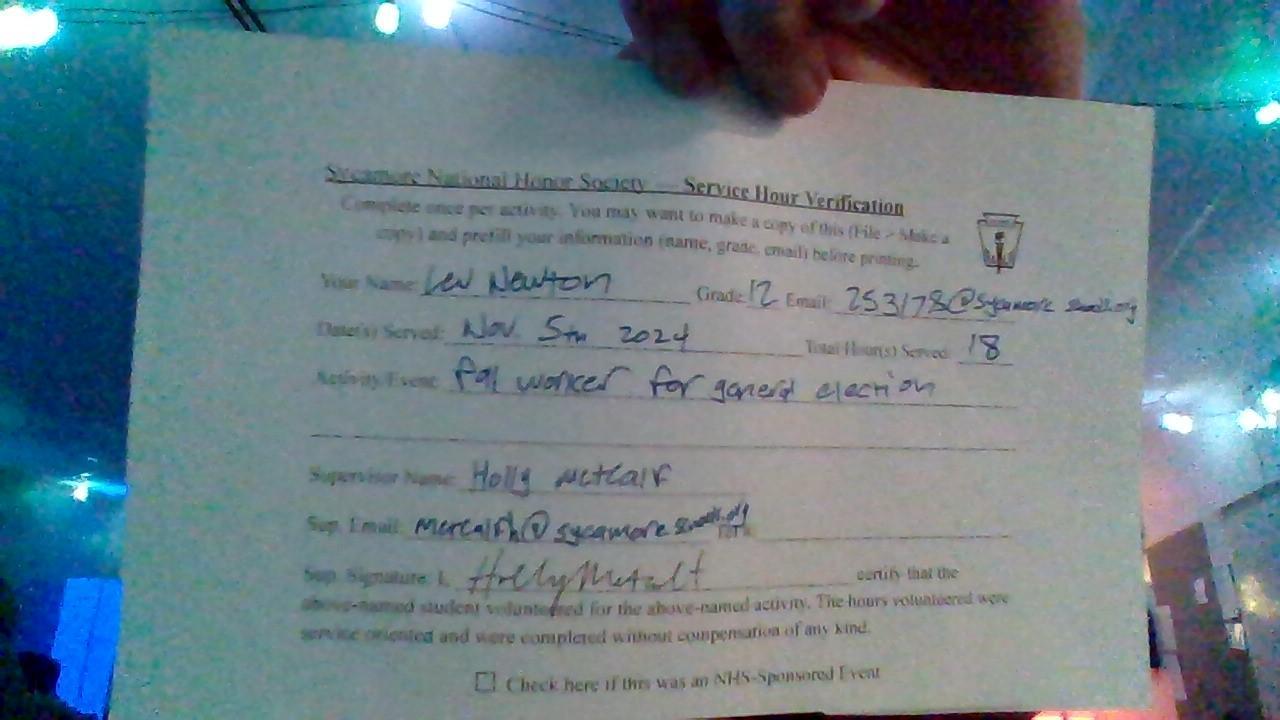 Sycamore National Honor Society Service Hour Verification
Complete once per activity. You may want to make a copy of this (File > Make a
copy) and prefill your information (name, grade, email) before printing.
Your Name: Lev Newton Grade: 12 Email: 253178@sycamore
Date(s) Served: Nov. 5th 2024 Total Hour(s) Served: 18
Activity/Event: Poll worker for general election
Supervisor Name: Holly Metcalf
Sup. Email: Metcalfh@sycamore
Sup. Signature: I, Holly Metcalf certify that the
above-named student volunteered for the above-named activity. The hours volunteered were
service oriented and were completed without compensation of any kind.
☐ Check here if this was an NHS-Sponsored Event